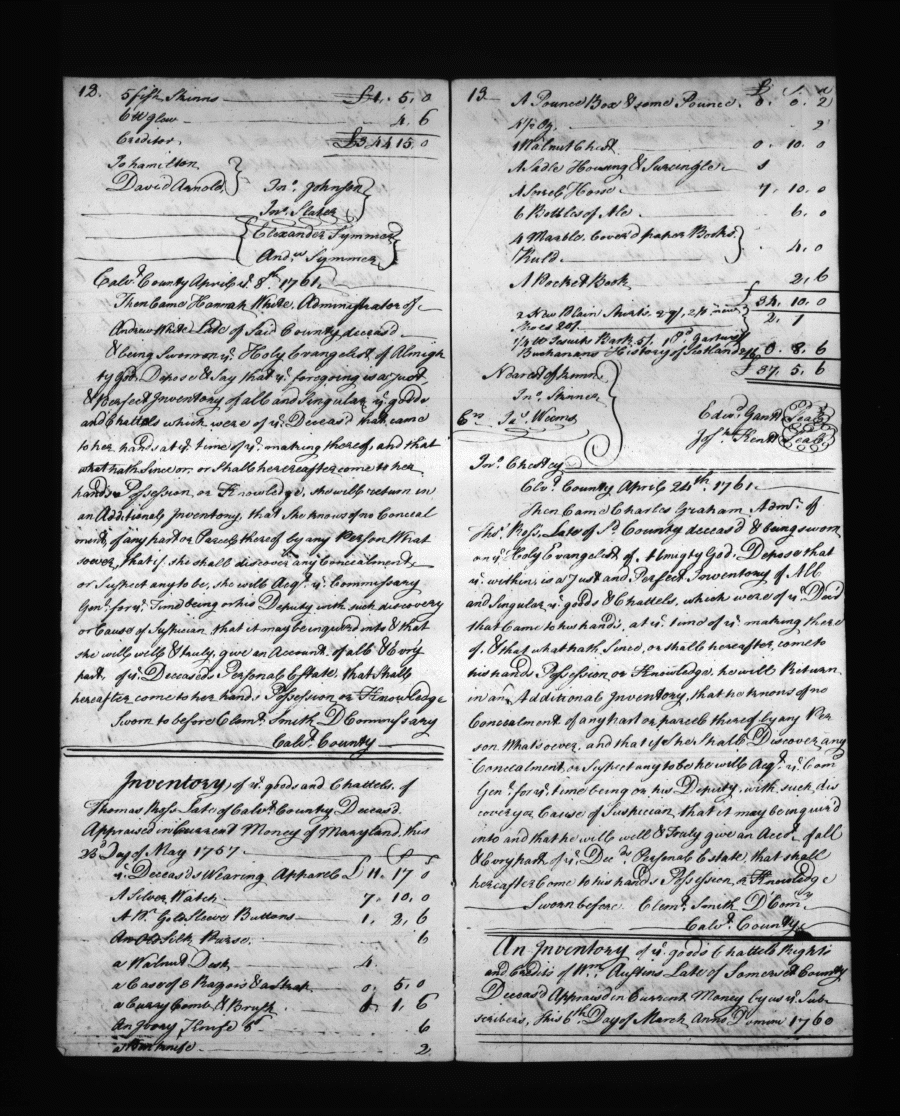 12.
5 fish Skinns £1. 5. 0
6 lb glew 4. 6
Creditor, £344 15. 0
Jo hamilton,
David Arnold, Jno. Johnson
Jno. Slater
Elexander Symmer
Andw. Symmer
Calvt. County April ye. 8th. 1761.
Then Came Hannah White, Administrator of
Andrew White Late of Said County deceasd
& being Sworn on ye. Holy Evangelist of Almigh
ty God, Depose & Say that ye. foregoing is a Just,
& Perfect Inventory of all and Singular ye. goods
and Chattels which were of ye. Deceasd that came
to her hands at ye. time of ye. making thereof, and that
what hath Since or Shall hereafter come to her
hands Possession, or Knowledge, she will return in
an Additional Inventory, that She knows of no Conceal
ment of any part or Parcel thereof by any Person What
soever, that if she shall discover any Concealment,
or Suspect any to be, She will Acqt. ye. Commissary
Genl. for ye. Time being or his Deputy with such discovery
or Cause of Suspician, that it may be inquired into & that
she will well & truly, give an Account of all & Evry
part, of ye. Deceaseds Personal Estate, that Shall
hereafter come to her hands Possession or Knowledge
Sworn to before Clemt. Smith D Commissary
Calvt. County
Inventory of ye. goods and Chattels, of
Thomas Ross Late of Calvt. County Deceasd.
Appraised in Current Money of Maryland, this
23d Day of May 1757.
ye. Deceasds Wearing Apparel £ 11. 17 0
A Silver Watch 7. 10. 0
A Pr. Gold Sleeve Buttons 1. 2. 6
An Old Silk Purse 6
a Walnut Desk 4.
a Case of 2 Razors & a strap 0. 5. 0
a Curry Comb & Brush 1. 6
An Ivory Knife 6
2
13. £ S. d
A Pounce Box & some Pounce. 0. 0. 2
2
Walnut Chest 0. 10. 0
A Sadle Housing & Surcingle
A Sorrel Horse 7. 10. 0
6 Bottles of Ale 6. 0
4 Marble Cover'd paper Books
Ruld 4. 0
A Pocket Book 2. 6
£ 34. 10. 0
2 New Plain Shirts
Shoes 2. 1
Jesuits Bark
Buchanans History of Scotland 0. 8. 6
£ 37. 5. 6
Nearest of kinn
Jno. Skinner
Crs. Jas. Weems
Edwd. Gantt Seal
Josh. Kent Seal
Jno. Chesley
Clvt. County April 24th. 1761.
Then Came Charles Graham Admr. of
Thos. Ross, Late of Sd. County deceasd & being sworn
on ye. Holy Evangelest of Almigty God, Depose that
ye. within, is a Just and Perfect Inventory of All
and Singular ye. goods & Chattels, which were of ye. Decd
that Came to his hands, at ye. time of ye. making there
of, & that what hath Since, or shall hereafter, come to
his hands Possession or Knowledge, he will Return
in an Additional Inventory, that he knows of no
Concealment of any part or parcel thereof by any Per
son Whatsoever, and that if She Shall Discover any
Concealment, or Suspect any to be he will Acqt. ye. Com
Genl. for ye. time being or his Deputy, with such, dis
covery or Cause of Suspician, that it may be inquird
into and that he will well & Truly give an Accot. of all
& Evry part of ye. Decds. Personal Estate, that shall
hereafter Come to his hands Possession, or Knowledge
Sworn before Clemt. Smith D Comy
Calvt. County
An Inventory of ye. goods Chattels Rights
and Credits of Wm. Austins Late of Somerset County
Deceasd Appraisd in Current Money by us ye. Sub-
scribers, this 6th Day of March Anno Domini 1760